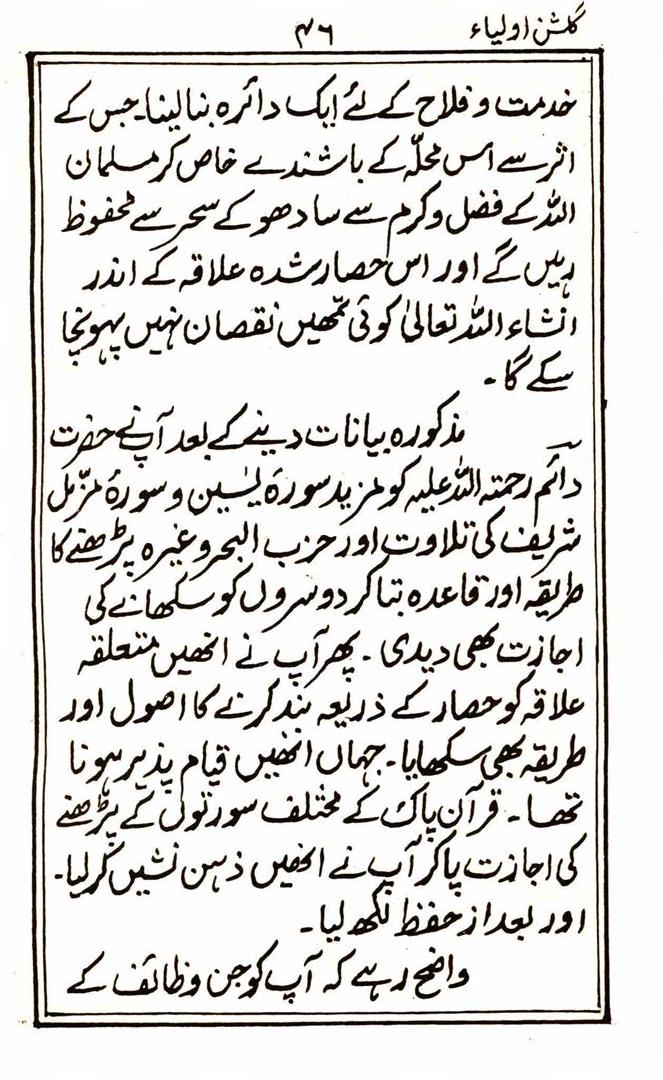 گلشن اولیاء
۴۶
خدمت و فلاح کے لئے ایک دائرہ بنا لینا۔ جس کے
اثر سے اس محلّہ کے باشندے خاص کر مسلمان
اللہ کے فضل و کرم سے سادھو کے سحر سے محفوظ
رہیں گے اور اس حصار شدہ علاقہ کے اندر
انشاء اللہ تعالیٰ کوئی تمھیں نقصان نہیں پہونچا
سکے گا۔
مذکورہ بیانات دینے کے بعد آپ نے حضرت
دائم رحمتہ اللہ علیہ کو مزید سورۂ یٰسین و سورۂ مزّمل
شریف کی تلاوت اور حزب البحر وغیرہ پڑھنے کا
طریقہ اور قاعدہ بتا کر دوسروں کو سکھانے کی
اجازت بھی دیدی۔ پھر آپ نے انھیں متعلقہ
علاقہ کو حصار کے ذریعہ بند کرنے کا اصول اور
طریقہ بھی سکھایا۔ جہاں انھیں قیام پذیر ہونا
تھا۔ قرآن پاک کے مختلف سورتوں کے پڑھنے
کی اجازت پا کر آپ نے انھیں ذہن نشیں کر لیا۔
اور بعد از حفظ لکھ لیا۔
واضح رہے کہ آپ کو جن وظائف کے